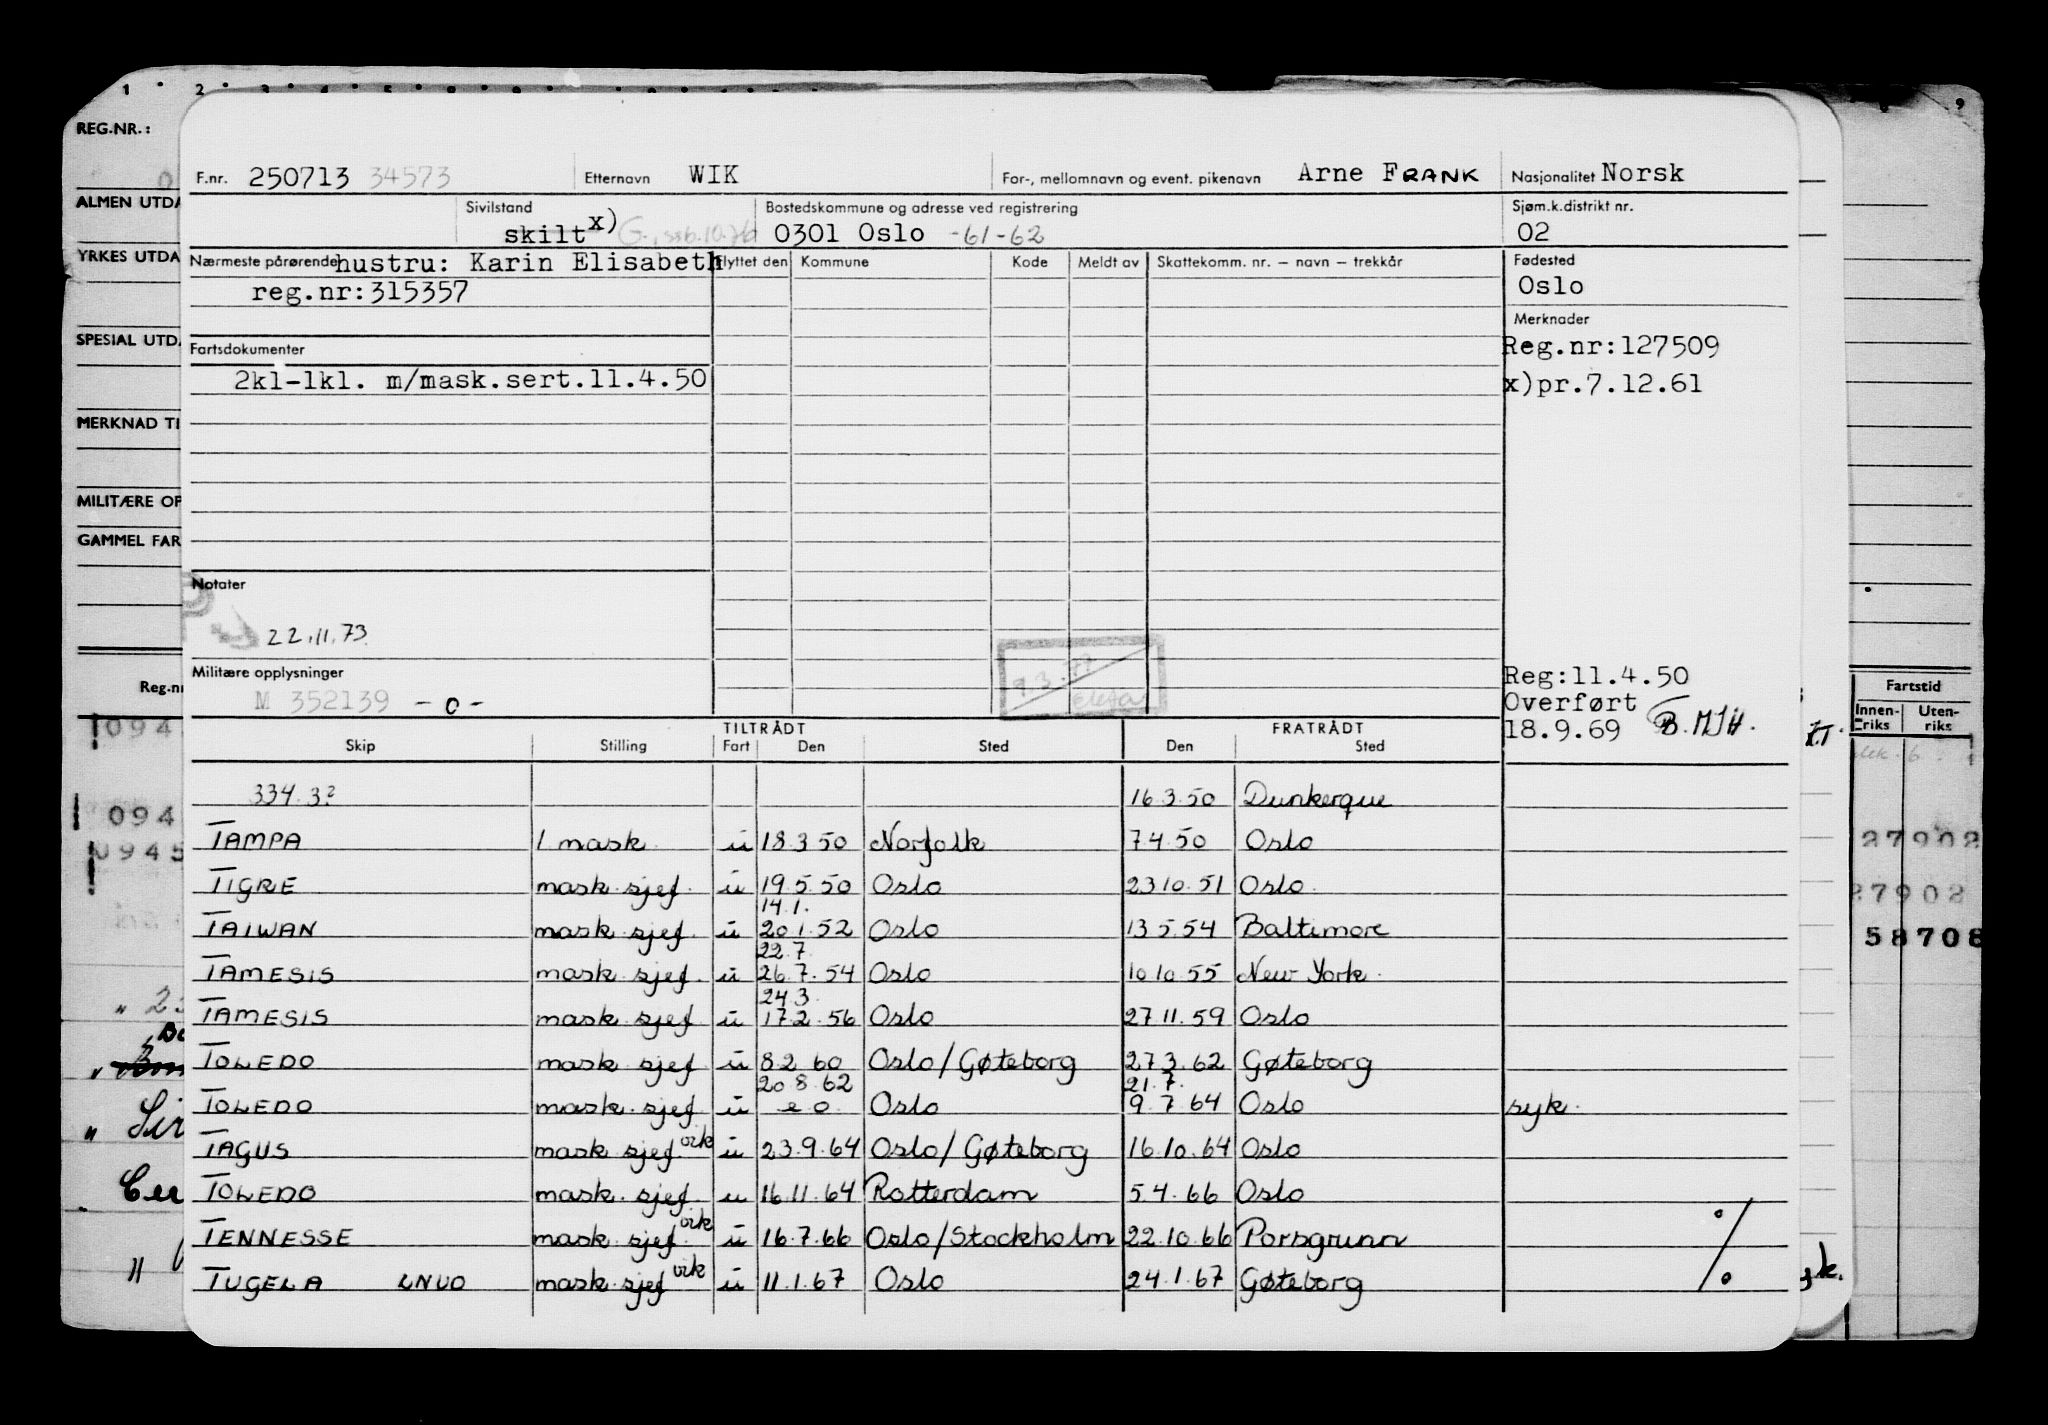 1 2 3 4 5 8 9 9
REG.NR.:
F.nr. 250713 34573 Etternavn WIK For-, mellomnavn og event. pikenavn Arne FRANK Nasjonalitet Norsk
ALMEN UTDA
Sivilstand Bostedskommune og adresse ved registrering Sjøm.k.distrikt nr.
skilt x) G. 0301 Oslo -61-62 02
YRKES UTDA
Nærmeste pårørende hustru: Karin Elisabeth Flyttet den Kommune Kode Meldt av Skattekomm. nr. – navn – trekkår Fødested
reg.nr:315357 Oslo
Merknader
SPESIAL UTDA
Fartsdokumenter Reg.nr:127509
2kl-1kl. m/mask.sert.11.4.50 x)pr.7.12.61
MERKNAD TI
MILITÆRE OP
GAMMEL FAR
Notater
22.11.73
Militære opplysninger Reg:11.4.50
M 352139 -o- 9.3.77 Overført
18.9.69 B.MJH.
Reg.nr Fartstid
Innen-riks Uten-riks
TILTRÅDT FRATRÅDT
Skip Stilling Fart Den Sted Den Sted
334.3? 16.3.50 Dunkerque
TAMPA 1 mask u 18.3.50 Norfolk 7.4.50 Oslo
TIGRE mask.sjef. u 19.5.50 Oslo 23.10.51 Oslo.
14.1.
TAIWAN mask sjef. u 20.1.52 Oslo 13.5.54 Baltimore
22.7.
TAMESIS mask sjef. u 26.7.54 Oslo 10.10.55 New York.
24.3.
TAMESIS mask.sjef u 17.2.56 Oslo 27.11.59 Oslo
TOLEDO mask sjef u 8.2.60 Oslo/Gøteborg 27.3.62 Gøteborg
20.8.62 21.7.
TOLEDO mask.sjef. u e o. Oslo 9.7.64 Oslo syk.
TAGUS mask sjef. vik u 23.9.64 Oslo/Gøteborg 16.10.64 Oslo
TOLEDO mask.sjef. u 16.11.64 Rotterdam 5.4.66 Oslo
TENNESSE mask sjef. vik u 16.7.66 Oslo/Stockholm 22.10.66 Porsgrunn
TUGELA LNVO mask sjef vik u 11.1.67 Oslo 24.1.67 Gøteborg
094
094
0945
27902
27902
58708